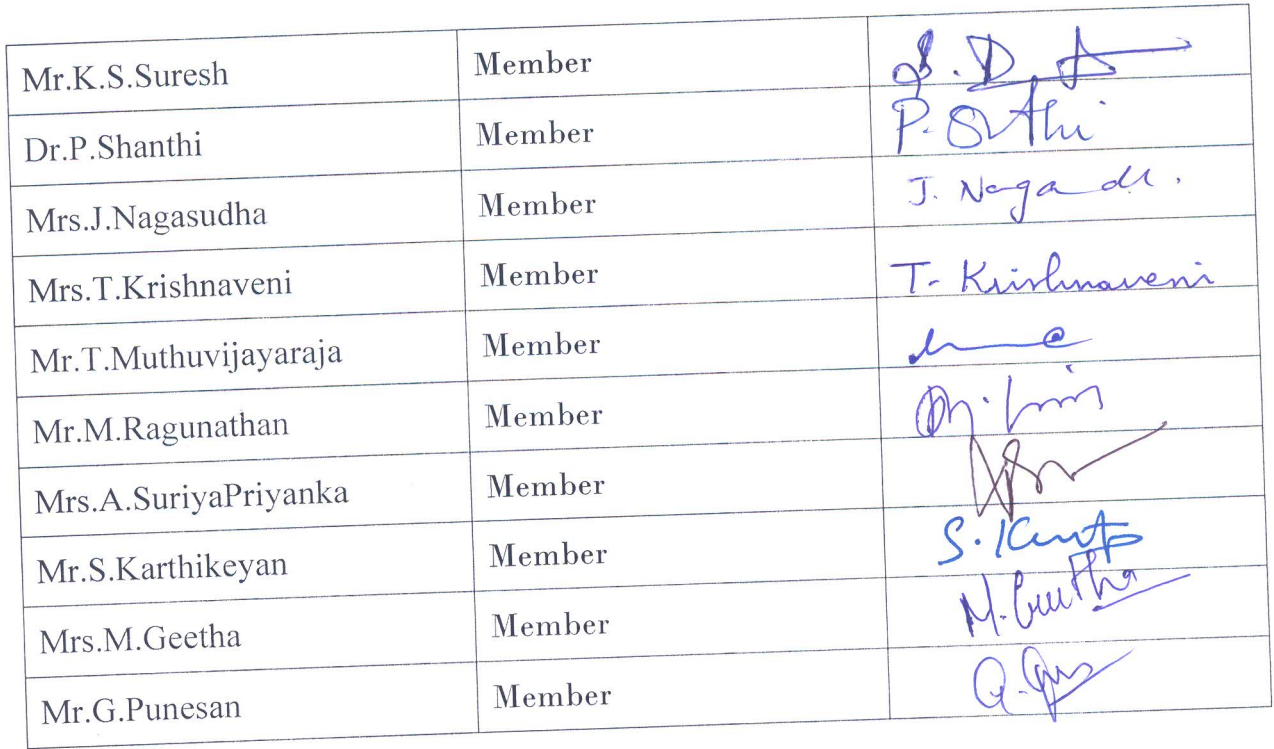 Mr.K.S.Suresh Member
Dr.P.Shanthi Member P.
Mrs.J.Nagasudha Member J.
Mrs.T.Krishnaveni Member T. Krishnaveni
Mr.T.Muthuvijayaraja Member
Mr.M.Ragunathan Member
Mrs.A.SuriyaPriyanka Member
Mr.S.Karthikeyan Member S.
Mrs.M.Geetha Member M. Geetha
Mr.G.Punesan Member